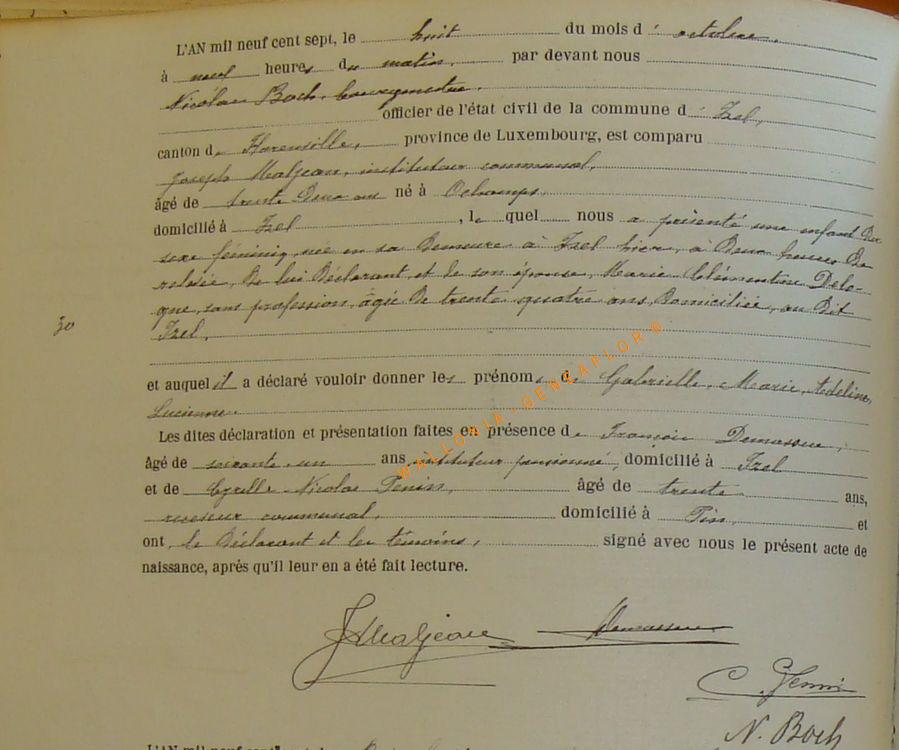 L'AN mil neuf cent sept, le huit du mois d' octobre,
à neuf heures du matin, par devant nous
Nicolas Boch, bourgmestre,
officier de l'état civil de la commune d' Izel,
canton de Florenville, province de Luxembourg, est comparu
Joseph Maljean, instituteur communal,
âgé de trente deux ans né à Ochamps,
domicilié à Izel, lequel nous a présenté une enfant du
sexe féminin, née en sa demeure à Izel hier, à deux heures de
relevée, de lui déclarant et de son épouse, Marie Clémentine Delo-
gne, sans profession, âgée de trente quatre ans, domiciliée, au dit
Izel,
30
et auquel il a déclaré vouloir donner les prénoms de Gabrielle, Marie, Adeline,
Lucienne.
Les dites déclaration et présentation faites en présence de François Demasseu,
âgé de soixante un ans, instituteur pensionné, domicilié à Izel
et de Cyrille Nicolas Penin, âgé de trente ans,
receveur communal, domicilié à Pin, et
ont, le déclarant et les témoins, signé avec nous le présent acte de
naissance, après qu'il leur en a été fait lecture.
WALLONIA-GENEAFLOR®
J Maljean Demasseu
C. Penin
N. Boch
L'AN mil neuf cent